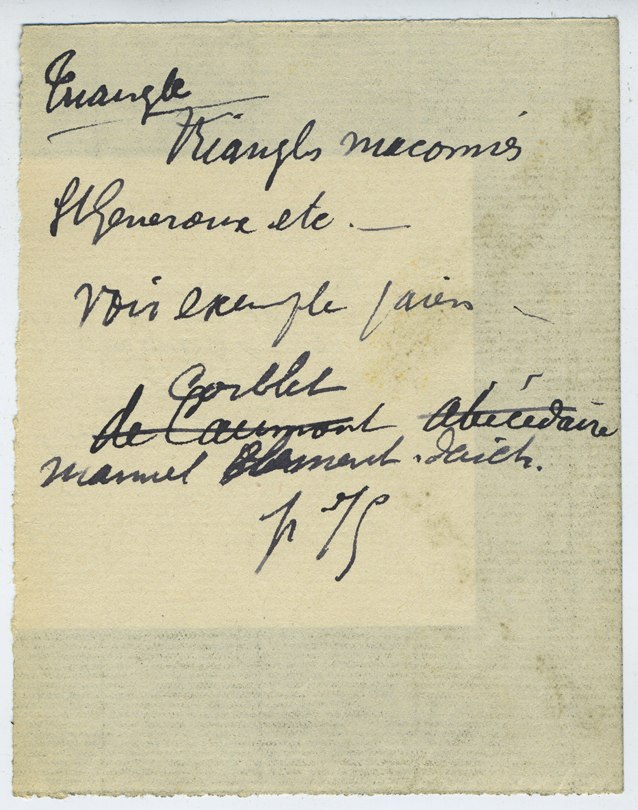 Triangle
Triangles maconnés
St Generoux etc. —
Voir exemple
Corblet
de Caumont abécédaire
manuel élément. d'arch.
p